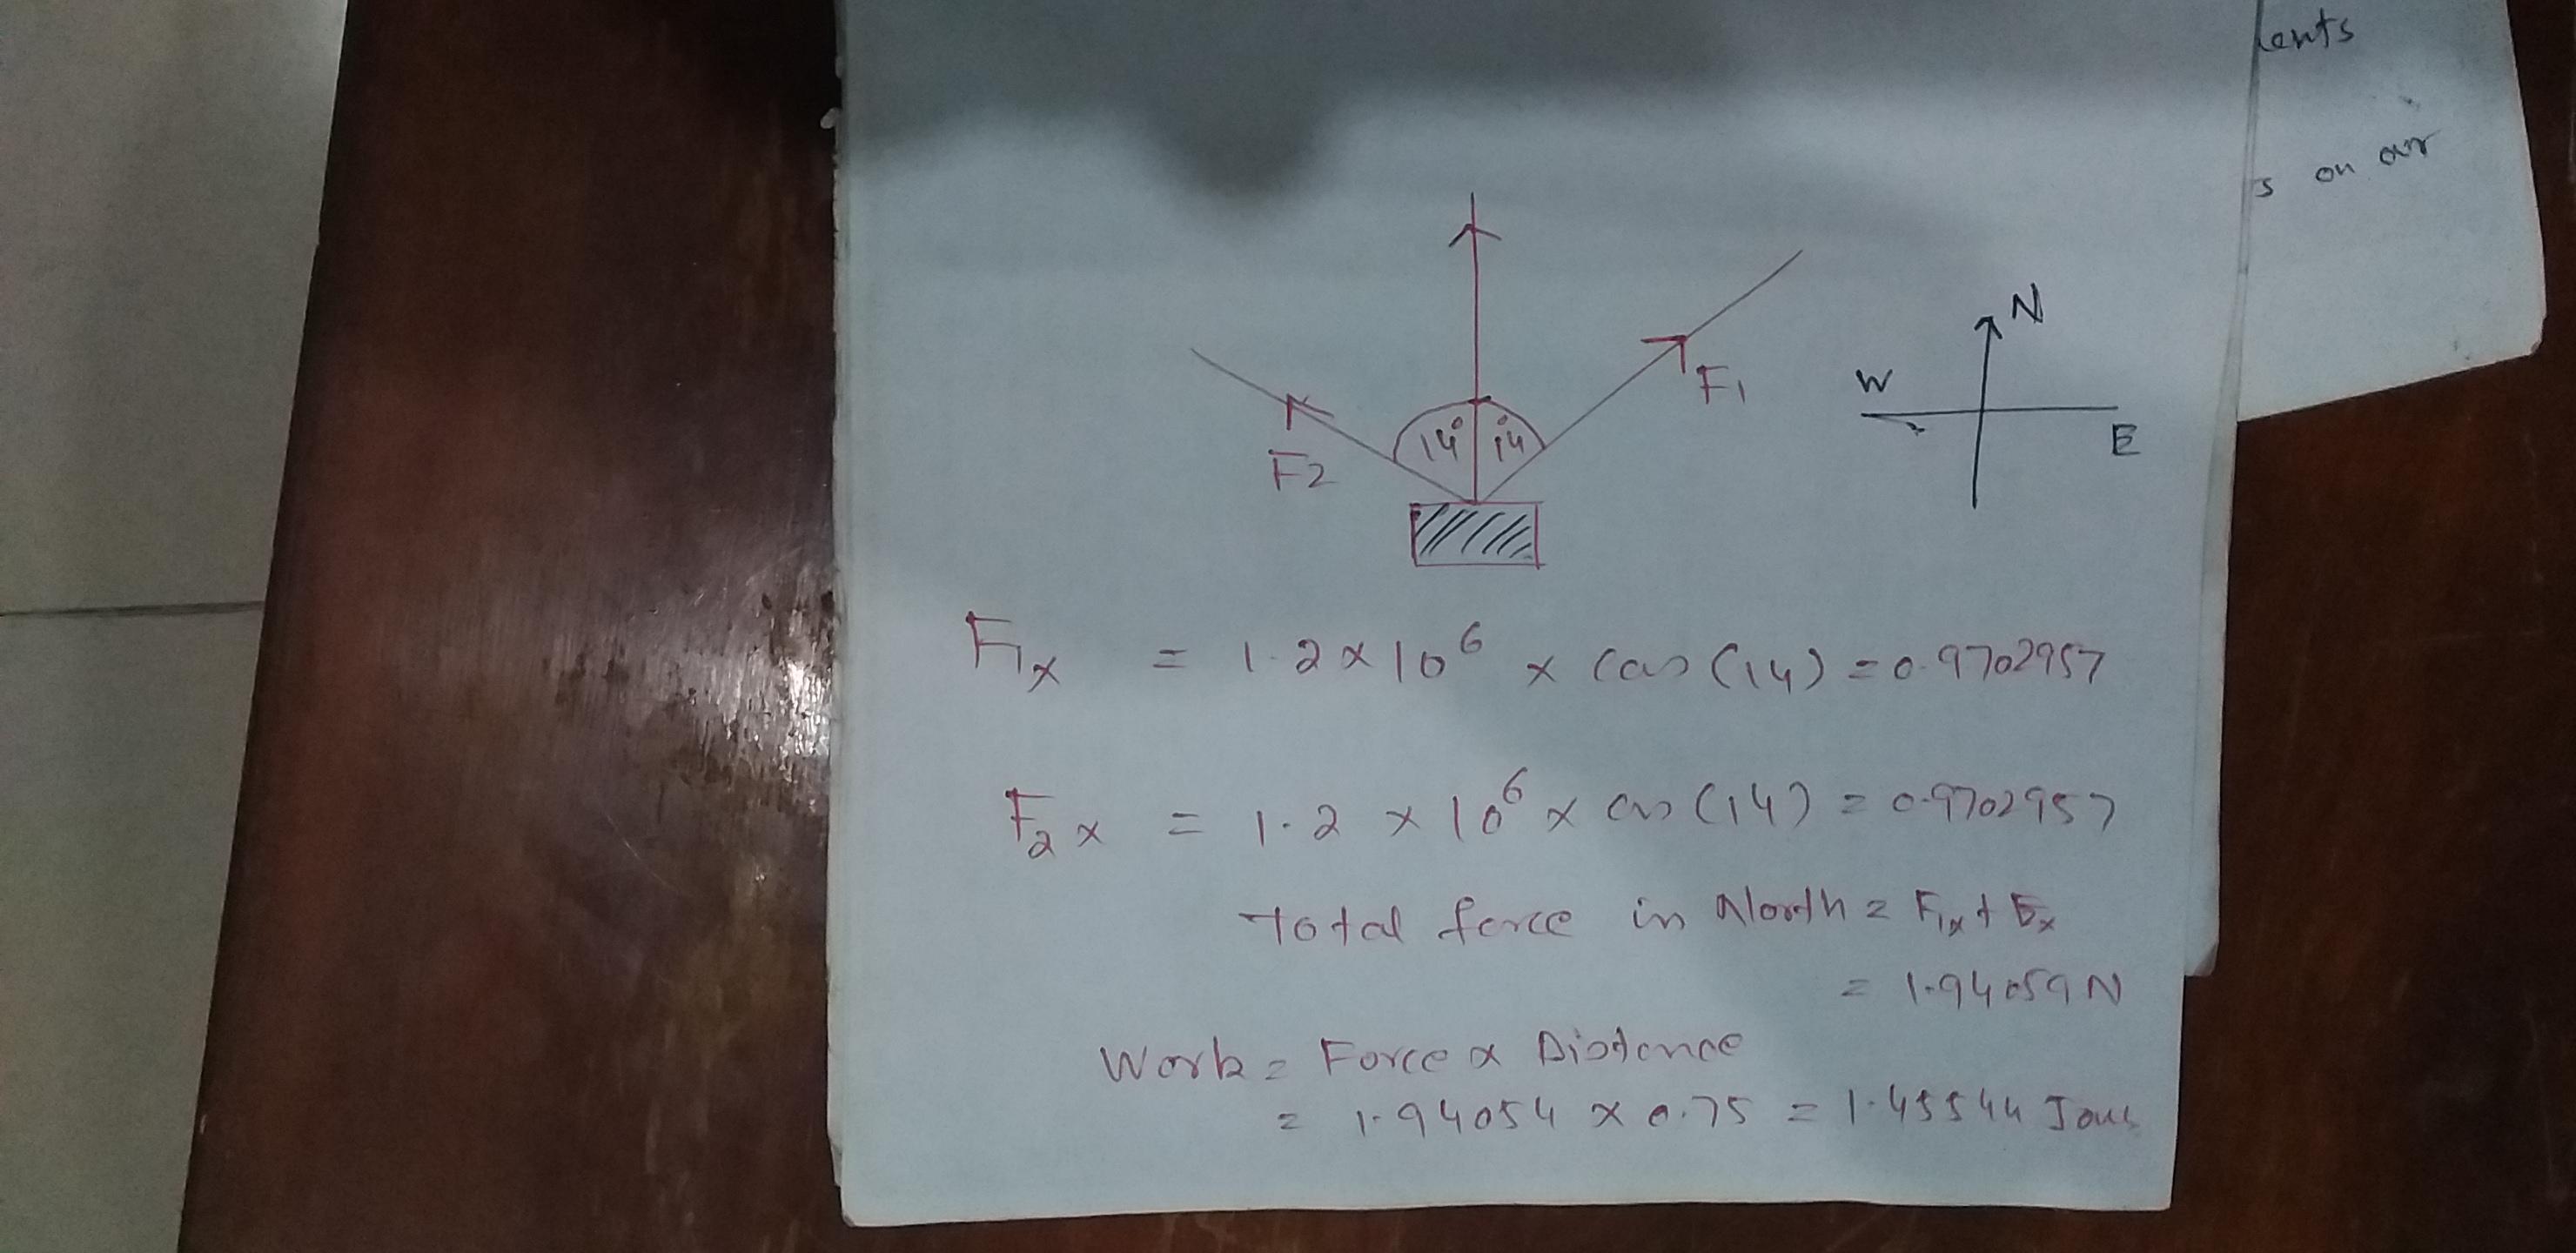 ents
s on air
N
W
E
F1
F2
14° 14°
F1x = 1.2 x 10^6 x cos (14) = 0.9702957
F2x = 1.2 x 10^6 x cos (14) = 0.9702957
Total force in North = F1x + F2x
= 1.94059 N
Work = Force x Distance
= 1.94054 x 0.75 = 1.45544 Joul